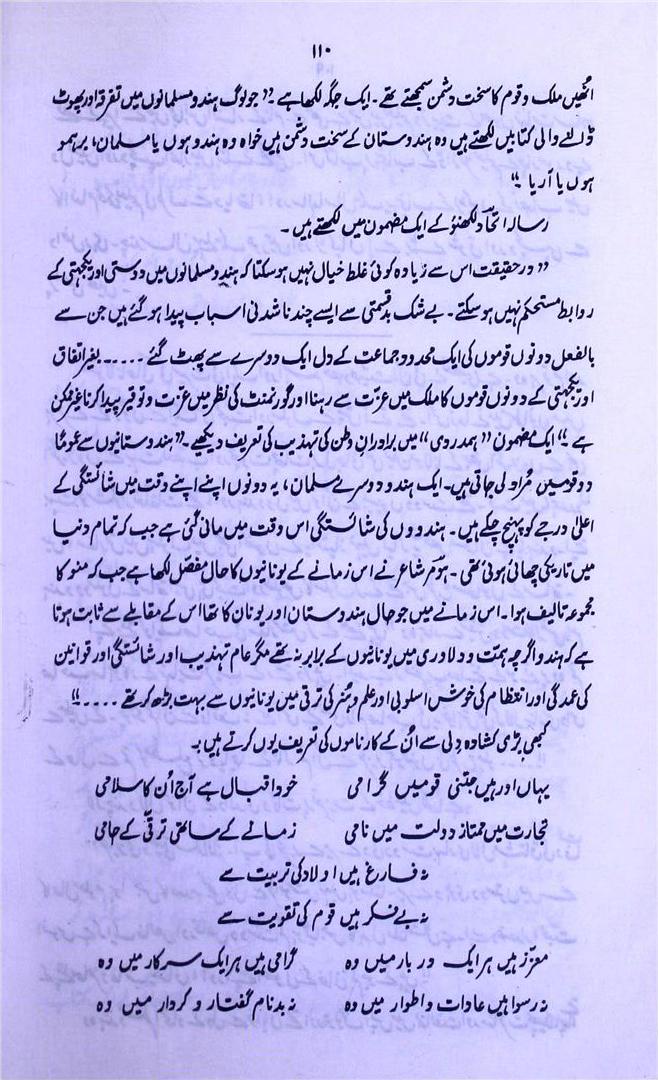 ۱۱۰
انھیں ملک و قوم کا سخت دشمن سمجھتے تھے۔ ایک جگہ لکھا ہے۔ ”جو لوگ ہندو مسلمانوں میں تفرقہ اور پھوٹ
ڈالنے والی کتابیں لکھتے ہیں وہ ہندوستان کے سخت دشمن ہیں خواہ وہ ہندو ہوں یا مسلمان، برہمو
ہوں یا آریا۔“
رسالہ اتحاد لکھنؤ کے ایک مضمون میں لکھتے ہیں۔
”درحقیقت اس سے زیادہ کوئی غلط خیال نہیں ہو سکتا کہ ہندو مسلمانوں میں دوستی اور یکجہتی کے
روابط مستحکم نہیں ہو سکتے۔ بے شک بد قسمتی سے ایسے چند ناشدنی اسباب پیدا ہو گئے ہیں جن سے
بالفعل دونوں قوموں کی ایک محدود جماعت کے دل ایک دوسرے سے پھٹ گئے ۔۔۔۔۔ بغیر اتفاق
اور یکجہتی کے دونوں قوموں کا ملک میں عزت سے رہنا اور گورنمنٹ کی نظر میں عزت و توقیر پیدا کرنا غیر ممکن
ہے۔“ ایک مضمون ”ہمدردی“ میں برادرانِ وطن کی تہذیب کی تعریف دیکھیے۔ ”ہندوستانیوں سے عموماً
دو قومیں مُراد لی جاتی ہیں۔ ایک ہندو دوسرے مسلمان، یہ دونوں اپنے اپنے وقت میں شائستگی کے
اعلیٰ درجے کو پہنچ چکے ہیں۔ ہندووں کی شائستگی اس وقت میں مانی گئی ہے جب کہ تمام دنیا
میں تاریکی چھائی ہوئی تھی۔ ہومر شاعر نے اس زمانے کے یونانیوں کا حال مفصّل لکھا ہے جب کہ منو کا
مجموعہ تالیف ہوا۔ اس زمانے میں جو حال ہندوستان اور یونان کا تھا اس کے مقابلے سے ثابت ہوتا
ہے کہ ہندو اگرچہ ہمّت و دلاوری میں یونانیوں کے برابر نہ تھے مگر عام تہذیب اور شائستگی اور قوانین
کی عمدگی اور انتظام کی خوش اسلوبی اور علم و ہُنر کی ترقی میں یونانیوں سے بہت بڑھ کر تھے ۔۔۔۔“
کبھی بڑی کشادہ دِلی سے اُن کے کارناموں کی تعریف یوں کرتے ہیں :۔
یہاں اور ہیں جتنی قومیں گرامی خود اقبال ہے آج اُن کا سلامی
تجارت میں ممتاز دولت میں نامی زمانے کے ساتھی ترقّی کے حامی
نہ فارغ ہیں اولاد کی تربیت سے
نہ بے فکر ہیں قوم کی تقویت سے
معزّز ہیں ہر ایک دربار میں وہ گرامی ہیں ہر ایک سرکار میں وہ
نہ رسوا ہیں عادات و اطوار میں وہ نہ بدنام گفتار و کردار میں وہ